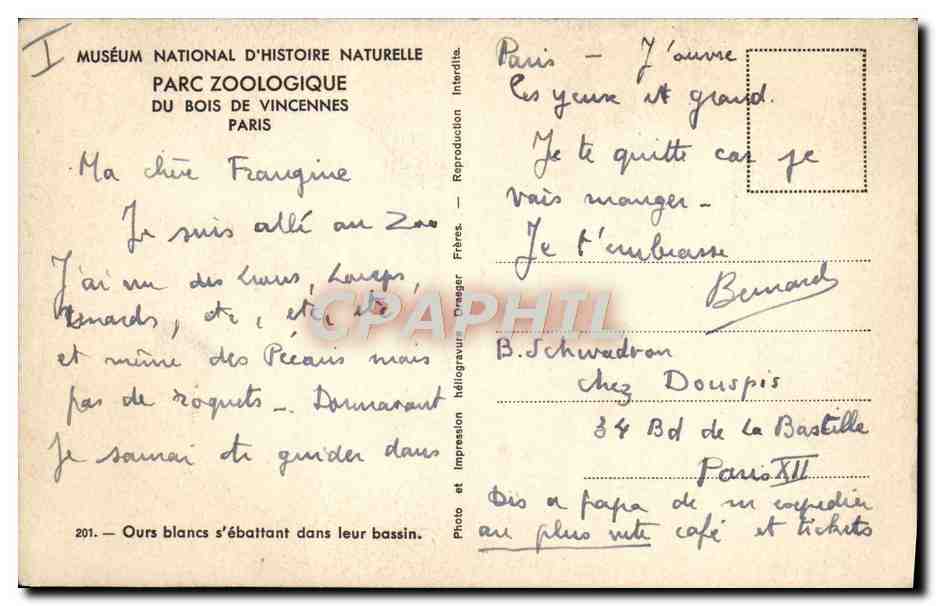 I
MUSÉUM NATIONAL D'HISTOIRE NATURELLE
PARC ZOOLOGIQUE
DU BOIS DE VINCENNES
PARIS
Ma chère Frangine
Je suis allé au Zoo
J'ai vu des Lions, Loups,
Renards, etc, etc, etc
et même des Pécaris mais
pas de roquets — Dorénavant
Je saurai te guider dans
201. — Ours blancs s'ébattant dans leur bassin.
Photo et Impression héliogravure Draeger Frères. — Reproduction Interdite.
Paris — J'ouvre
les yeux et grand.
Je te quitte car je
vais manger —
Je t'embrasse
Bernard
B. Schwadron
chez Douspis
34 Bd de La Bastille
Paris XII
Dis a papa de m'expedier
au plus vite café et tickets
CPAPHIL